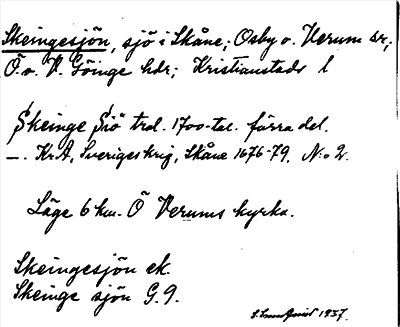 Skeingesjön, sjö i Skåne; Osby o. Verum snr;
Ö. o. V. Göinge hdr; Kristianstads l
Skeinge Siö trol. 1700-tal. förra del.
—. KrA, Sveriges krig, Skåne 1676-79. N:o 2.
Läge 6 km. Ö Verums kyrka.
Skeingesjön ek.
Skeinge sjön G. 9.
1937.